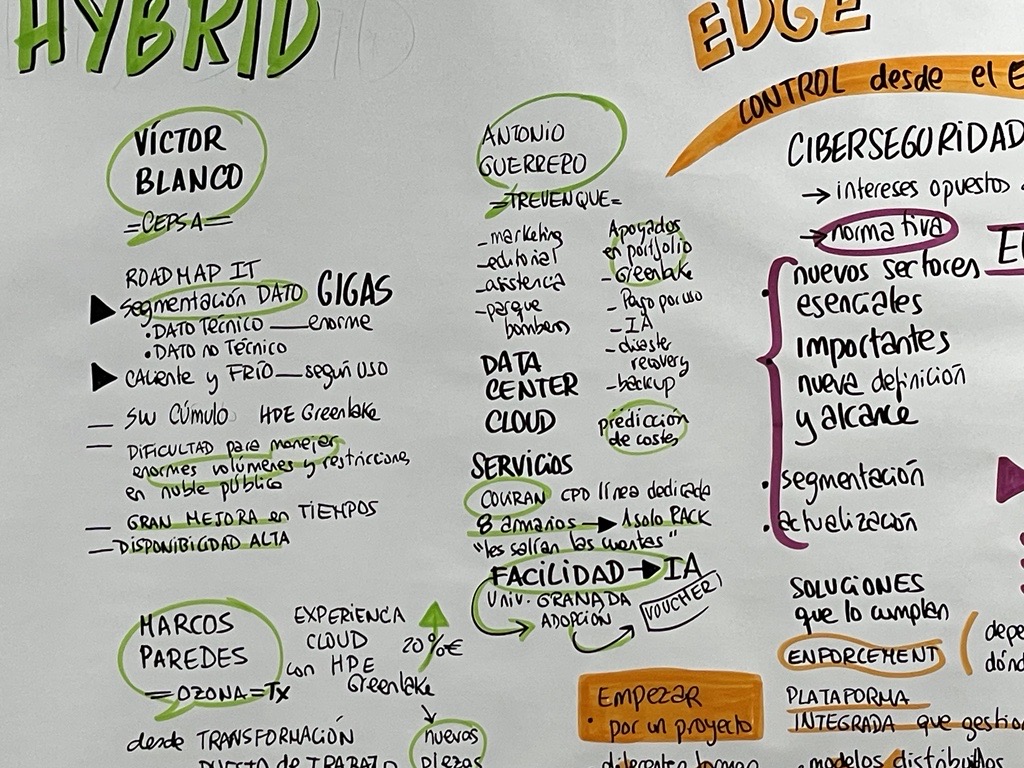 HYBRID
VÍCTOR
BLANCO
=CEPSA=
ROADMAP IT
segmentación DATO GIGAS
• DATO TÉCNICO — enorme
• DATO no TÉCNICO
CALIENTE y FRÍO — según USO
— SW CÚMULO HPE Greenlake
— DIFICULTAD para manejar
enormes volúmenes y restricciones
en nuble público
— GRAN MEJORA en TIEMPOS
— DISPONIBILIDAD ALTA
MARCOS
PAREDES
=OZONA=Tx
EXPERIENCA
CLOUD
con HPE
Greenlake
20%€
nuevas
plezas
desde TRANSFORMACIÓN
PUESTO de TRABAJO
ANTONIO
GUERRERO
=TREVENQUE=
– marketing
– editorial
– asistencia
– parque
bombero
DATA
CENTER
CLOUD
Apoyados
en portfolio
– Greenlake
– Pago por uso
– IA
– disaster
recovery
– backup
predicción
de costes
SERVICIOS
COVIRAN CPD línea dedicada
8 armarios → 1 solo RACK
"les salían las cuentas"
FACILIDAD → IA
Univ. GRANADA
ADOPCIÓN
VOUCHER
EDGE
CONTROL desde el
CIBERSEGURIDAD
→ intereses opuestos
→ normativa
• nuevos sectores
esenciales
importantes
nueva definición
y alcance
• segmentación
• actualización
SOLUCIONES
que lo cumplen
ENFORCEMENT
PLATAFORMA
INTEGRADA que
Empezar
• por un proyecto
• modelos distribuidos